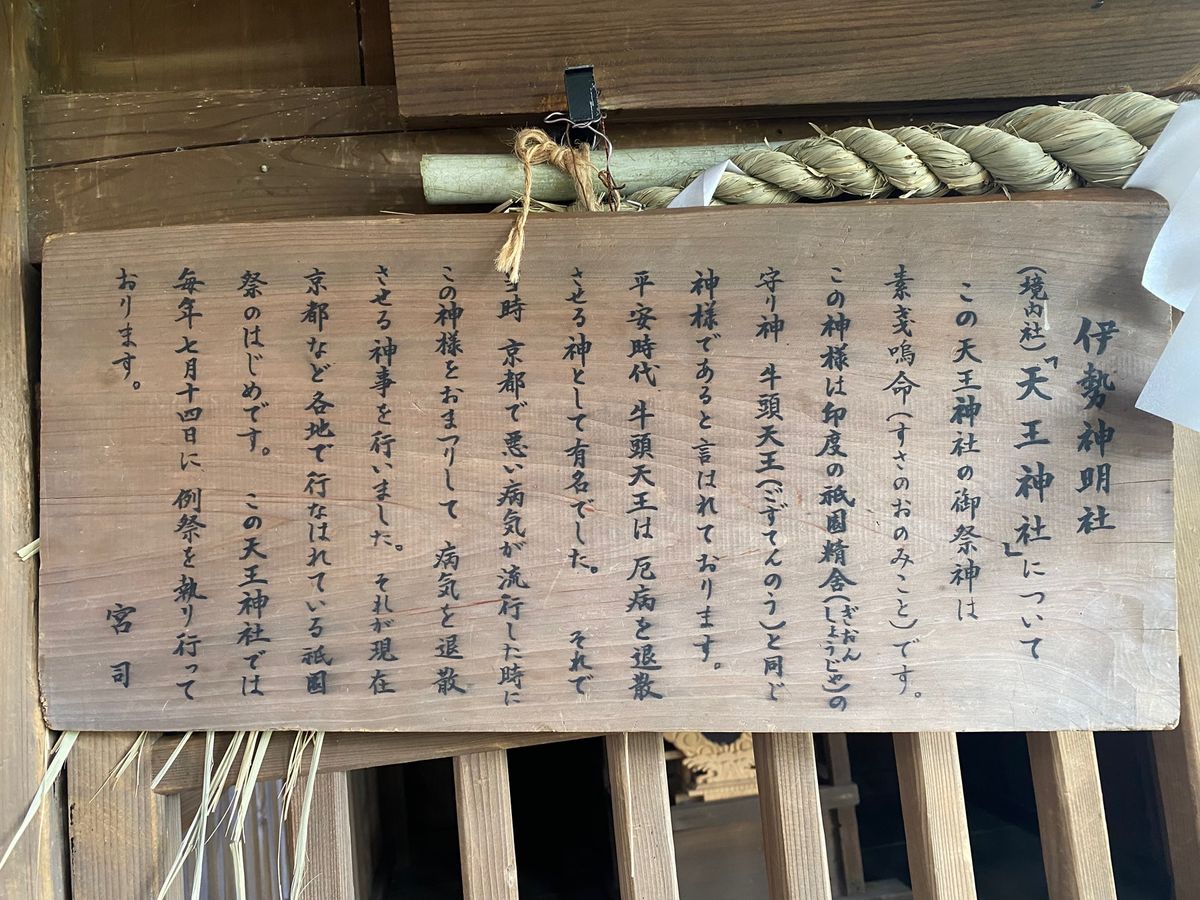 伊勢神明社
(境内社)「天王神社」について
この天王神社の御祭神は
素戔嗚命(すさのおのみこと)です。
この神様は印度の祇園精舎(ぎおんしょうじゃ)の
守り神 牛頭天王(ごずてんのう)と同じ
神様であると言はれております。
平安時代 牛頭天王は 厄病を退散
させる神として有名でした。 それで
当時 京都で悪い病気が流行した時に
この神様をおまつりして 病気を退散
させる神事を行いました。 それが現在
京都など各地で行なはれている祇園
祭のはじめです。 この天王神社では
毎年七月十四日に、例祭を執り行って
おります。
宮司